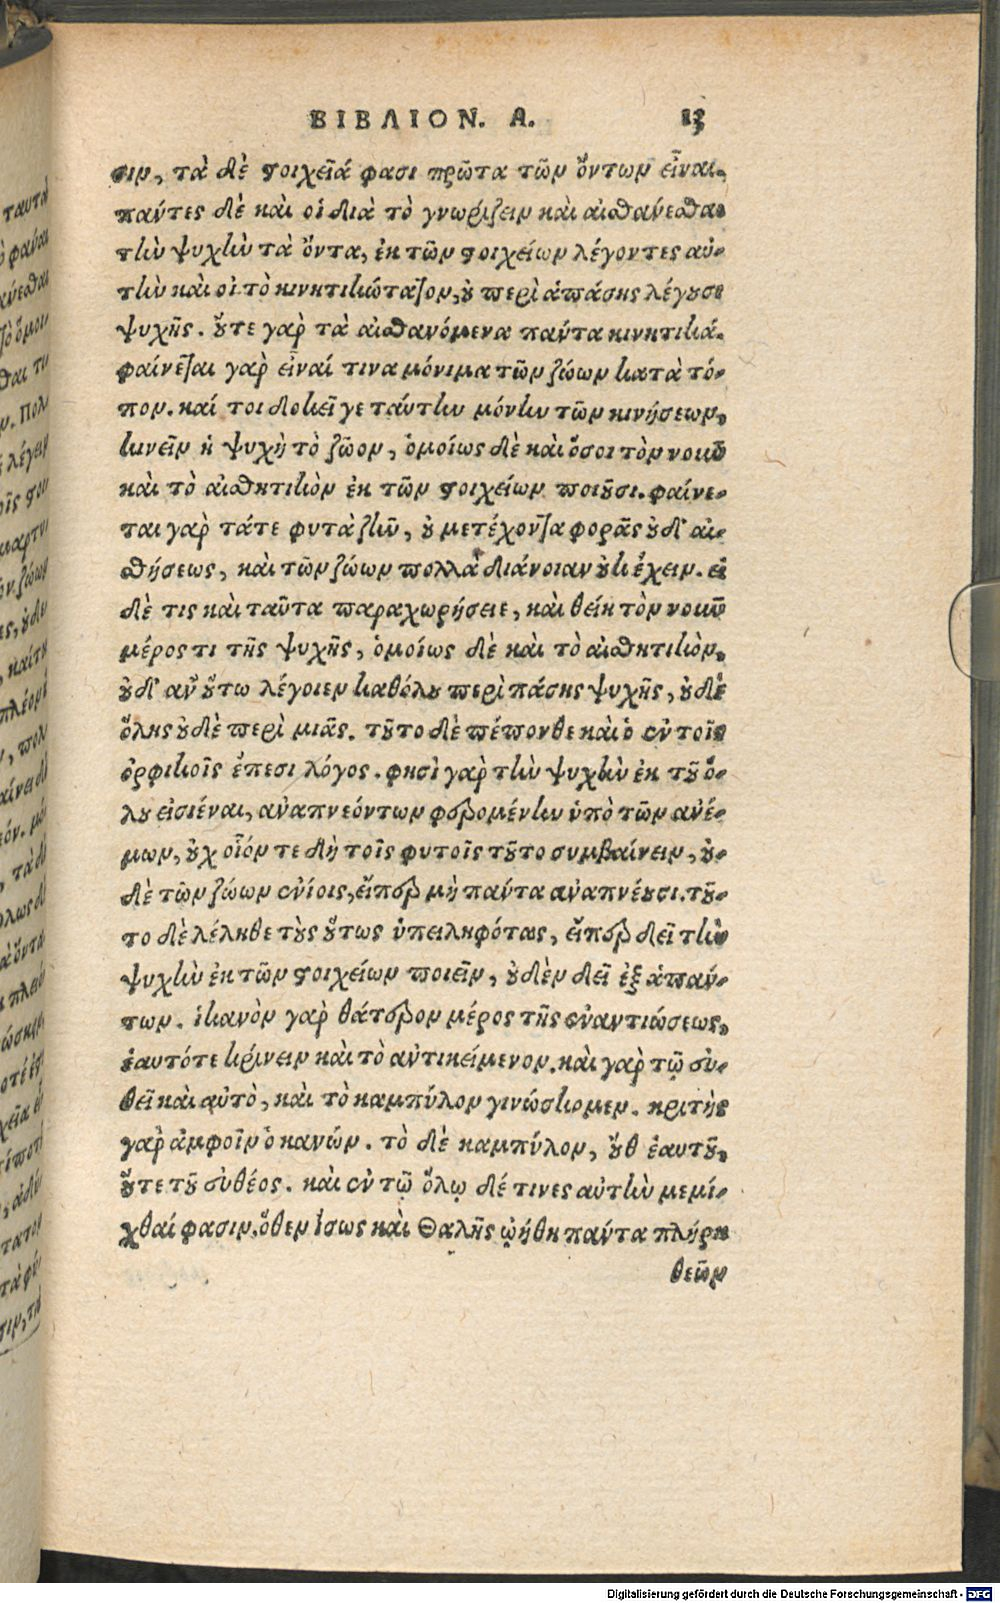 ΒΙΒΛΙΟΝ. Α. 13
σιν, τὰ δὲ στοιχεῖά φασι πρῶτα τῶν ὄντων εἶναι.
πάντες δὲ καὶ οἱ διὰ τὸ γνωρίζειν καὶ αἰσθάνεσθαι
τὴν ψυχὴν τὰ ὄντα, ἐκ τῶν στοιχείων λέγοντες αὐ-
τὴν καὶ οἱ τὸ κινητικώτατον, οὐ περὶ ἁπάσης λέγουσι
ψυχῆς. οὔτε γὰρ τὰ αἰσθανόμενα πάντα κινητικά.
φαίνεται γὰρ εἶναί τινα μόνιμα τῶν ζώων κατὰ τό-
πον. καί τοι δοκεῖ γε ταύτην μόνην τῶν κινήσεων,
κινεῖν ἡ ψυχὴ τὸ ζῶον, ὁμοίως δὲ καὶ ὅσοι τὸν νοῦν
καὶ τὸ αἰσθητικὸν ἐκ τῶν στοιχείων ποιοῦσι. φαίνε-
ται γὰρ τάτε φυτὰ ζῆν, οὐ μετέχοντα φορᾶς οὐδ' αἰ-
σθήσεως, καὶ τῶν ζώων πολλὰ διάνοιαν οὐκ ἔχειν. εἰ
δὲ τις καὶ ταῦτα παραχωρήσειε, καὶ θείη τὸν νοῦν
μέρος τι τῆς ψυχῆς, ὁμοίως δὲ καὶ τὸ αἰσθητικὸν,
οὐδ' ἂν οὕτω λέγοιεν καθόλου περὶ πάσης ψυχῆς, οὐδὲ
ὅλης οὐδὲ περὶ μιᾶς. τοῦτο δὲ πέπονθε καὶ ὁ ἐν τοῖς
ὀρφικοῖς ἔπεσι λόγος. φησὶ γὰρ τὴν ψυχὴν ἐκ τοῦ ὅ-
λου εἰσιέναι, ἀναπνεόντων φερομένην ὑπὸ τῶν ἀνέ-
μων, οὐχ οἷόν τε δὴ τοῖς φυτοῖς τοῦτο συμβαίνειν, οὐ-
δὲ τῶν ζώων ἐνίοις, εἴπερ μὴ πάντα ἀναπνέουσι. τοῦ-
το δὲ λέληθε τοὺς οὕτως ὑπειληφότας, εἴπερ δεῖ τὴν
ψυχὴν ἐκ τῶν στοιχείων ποιεῖν, οὐδὲν δεῖ ἐξ ἁπάν-
των. ἱκανὸν γὰρ θάτερον μέρος τῆς ἐναντιώσεως,
ἑαυτότε κρίνειν καὶ τὸ ἀντικείμενον. καὶ γὰρ τῷ εὐ-
θεῖ καὶ αὐτὸ, καὶ τὸ καμπύλον γινώσκομεν. κριτὴς
γὰρ ἀμφοῖν ὁ κανών. τὸ δὲ καμπύλον, οὔθ ἑαυτοῦ,
οὔτε τοῦ εὐθέος. καὶ ἐν τῷ ὅλῳ δέ τινες αὐτὴν μεμί-
χθαί φασιν. ὅθεν ἴσως καὶ Θαλῆς ᾠήθη πάντα πλήρη
θεῶν
Digitalisierung gefördert durch die Deutsche Forschungsgemeinschaft - DFG